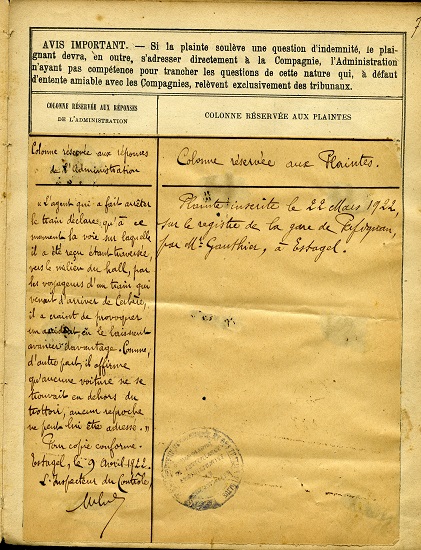 AVIS IMPORTANT. — Si la plainte soulève une question d'indemnité, le plai-
gnant devra, en outre, s'adresser directement à la Compagnie, l'Administration
n'ayant pas compétence pour trancher les questions de cette nature qui, à défaut
d'entente amiable avec les Compagnies, relèvent exclusivement des tribunaux.
COLONNE RÉSERVÉE AUX RÉPONSES
DE L'ADMINISTRATION
COLONNE RÉSERVÉE AUX PLAINTES
Colonne réservée aux réponses
de l'Administration
« L'agent qui a fait arrêter
le train déclare qu'à ce
moment la voie sur laquelle
il a été reçu étant traversée,
vers le milieu du hall, par
les voyageurs d'un train qui
venait d'arriver de Cerbère,
il a craint de provoquer
un accident en le laissant
avancer davantage. Comme,
d'autre part, il affirme
qu'aucune voiture ne se
trouvait en dehors du
trottoir, aucun reproche
ne peut lui être adressé. »
Pour copie conforme.
Estagel, le 9 Avril 1922.
L'Inspecteur du Contrôle,
Colonne réservée aux Plaintes.
Plainte inscrite le 22 Mars 1922,
sur le registre de la gare de Perpignan,
par Mr Gauthier, à Estagel.